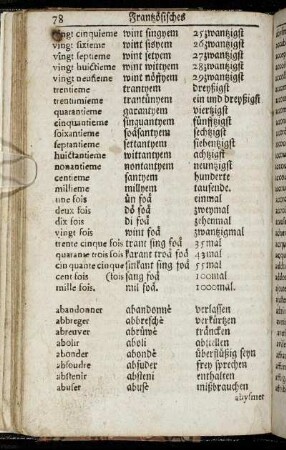 78 Frantzösisches
vingt cinquieme wint singyem 25zwantzigst
vingt sixieme wint sisyem 26zwantzigst
vingt septieme wint setyem 27zwantzigst
vingt huictieme wint wittyem 28zwantzigst
vingt neufieme wint nöffyem 29zwantzigst
trentieme trantyem dreyßigst
trentunieme trantünyem ein und dreyßigst
quarantieme garantyem viertzigst
cinquantieme singuantyem fünfftzigst
soixantieme soäsantyem sechtzigst
septantieme settantyem siebentzigst
huictantieme wittantyem achtzigst
nonantieme nontantyem neuntzigst
centieme santyem hunderte
millieme millyem tausende.
une fois ün foä einmal
deux fois dö foä zweymal
dix fois di foä zehenmal
vingt fois wint foä zwantzigmal
trente cinque fois trant sing foä 35mal
quarante trois fois karant troä foä 43mal
cinquante cinque sinkant sing foä 55mal
cent fois (fois sang foä 100mal
mille fois. mil foä. 1000mal.
abandonner abandonnè verlassen
abbreger abbreschè verkürtzen
abreuver abrüwè träncken
abolir aboli abstellen
abonder abondè überflüßig seyn
absoudre absuder frey sprechen
abstenir absteni enthalten
abuser abusè mißbrauchen
abysmer